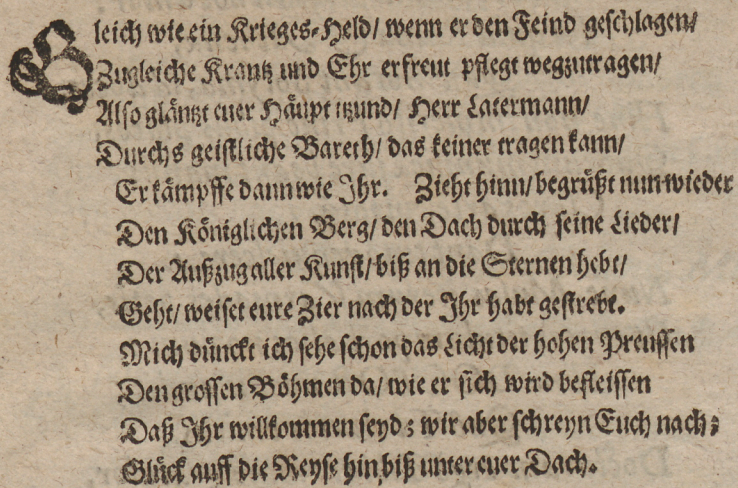 Gleich wie ein Krieges-Held/ wenn er den Feind geschlagen/
Zugleiche Krantz und Ehr erfreut pflegt wegzutragen/
Also gläntzt euer Häupt itzund/ Herr Latermann/
Durchs geistliche Bareth/ das keiner tragen kann/
Er kämpffe dann wie Ihr. Zieht hinn/ begrüßt nun wieder
Den Königlichen Berg/ den Dach durch seine Lieder/
Der Außzug aller Kunst/ biß an die Sternen hebt/
Geht/ weiset eure Zier nach der Ihr habt gestrebt.
Mich dünckt ich sehe schon das Licht der hohen Preussen
Den grossen Böhmen da/ wie er sich wird befleissen
Daß Ihr willkommen seyd; wir aber schreyn Euch nach;
Glück auff die Reyse hin biß unter euer Dach.